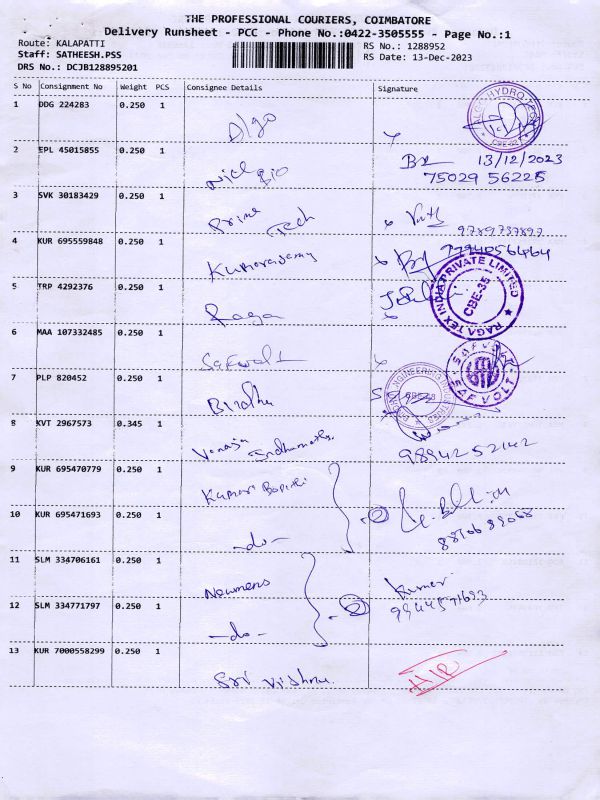 THE PROFESSIONAL COURIERS, COIMBATORE
Delivery Runsheet - PCC - Phone No.:0422-3505555 - Page No.:1
Route: KALAPATTI
Staff: SATHEESH.PSS
DRS No.: DCJB128895201
RS No.: 1288952
RS Date: 13-Dec-2023
S No Consignment No Weight PCS Consignee Details Signature
1 DDG 224283 0.250 1 Algo
ALGO HYDRO TECH
2 EPL 45015855 0.250 1
13/12/2023
75029 56225
3 SVK 30183429 0.250 1 Prime Tech
4 KUR 695559848 0.250 1 Kumarasamy
5 TRP 4292376 0.250 1 Raga
RAGA TEX INDIA PRIVATE LIMITED
CBE-35
6 MAA 107332485 0.250 1
SAFVOLT
SAFVOLT
7 PLP 820452 0.250 1 Bindhu
8 KVT 2967573 0.345 1 Vanaja
98942 52142
9 KUR 695470779 0.250 1 Kumar
10 KUR 695471693 0.250 1 -do- 2
11 SLM 334706161 0.250 1 Newmens Kumar
12 SLM 334771797 0.250 1 -do- 2
13 KUR 7000558299 0.250 1 Sri Vishnu